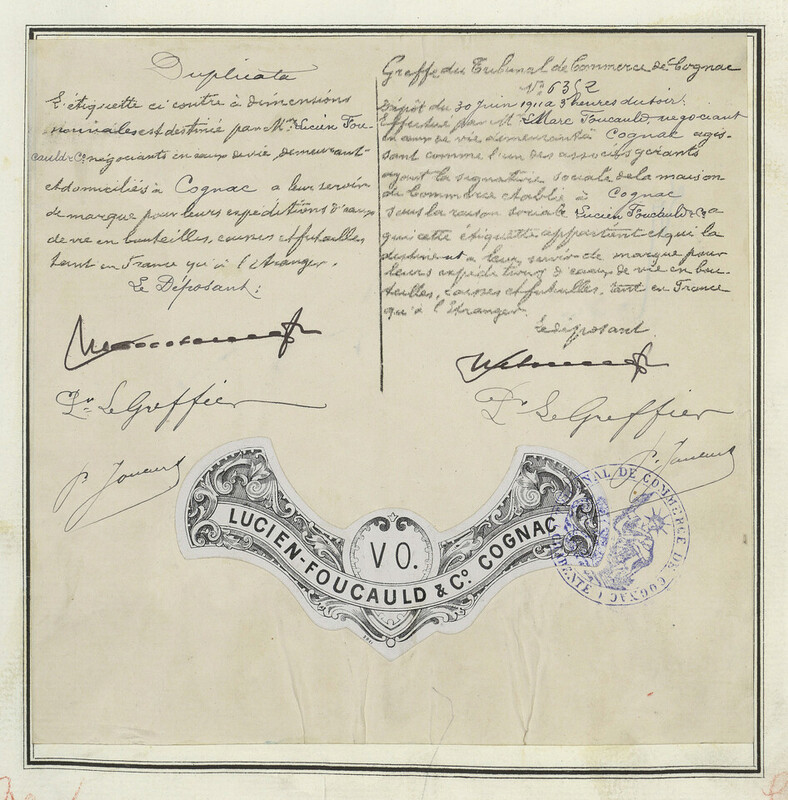 Duplicata
L'étiquette ci contre à dimensions
normales est destinée par Mrs Lucien Fou-
cauld & Co négociants en eaux de vie demeurant
et domiciliés à Cognac a leur servir
de marque pour leurs expéditions d'eaux
de vie en bouteilles, caisses et futailles
tant en France qu'à l'étranger.
Le Déposant:
Pr Le Greffier
Greffe du Tribunal de Commerce de Cognac
No 6352
Dépôt du 30 Juin 1911 à 3 heures du soir.
Effectué par M. Marc Foucauld, négociant
en eaux de vie demeurant à Cognac agis-
sant comme l'un des associés gérants
ayant la signature sociale de la maison
de Commerce établie à Cognac
sous la raison sociale Lucien Foucauld & Co a
qui cette étiquette appartient et qui la
destinent à leur servir de marque pour
leurs expéditions d'eaux de vie en bou-
teilles, caisses et futailles, tant en France
qu'à l'étranger.
Le déposant
Pr Le Greffier
LUCIEN-FOUCAULD & Co. COGNAC
VO.
TRIBUNAL DE COMMERCE DE COGNAC (CHARENTE)